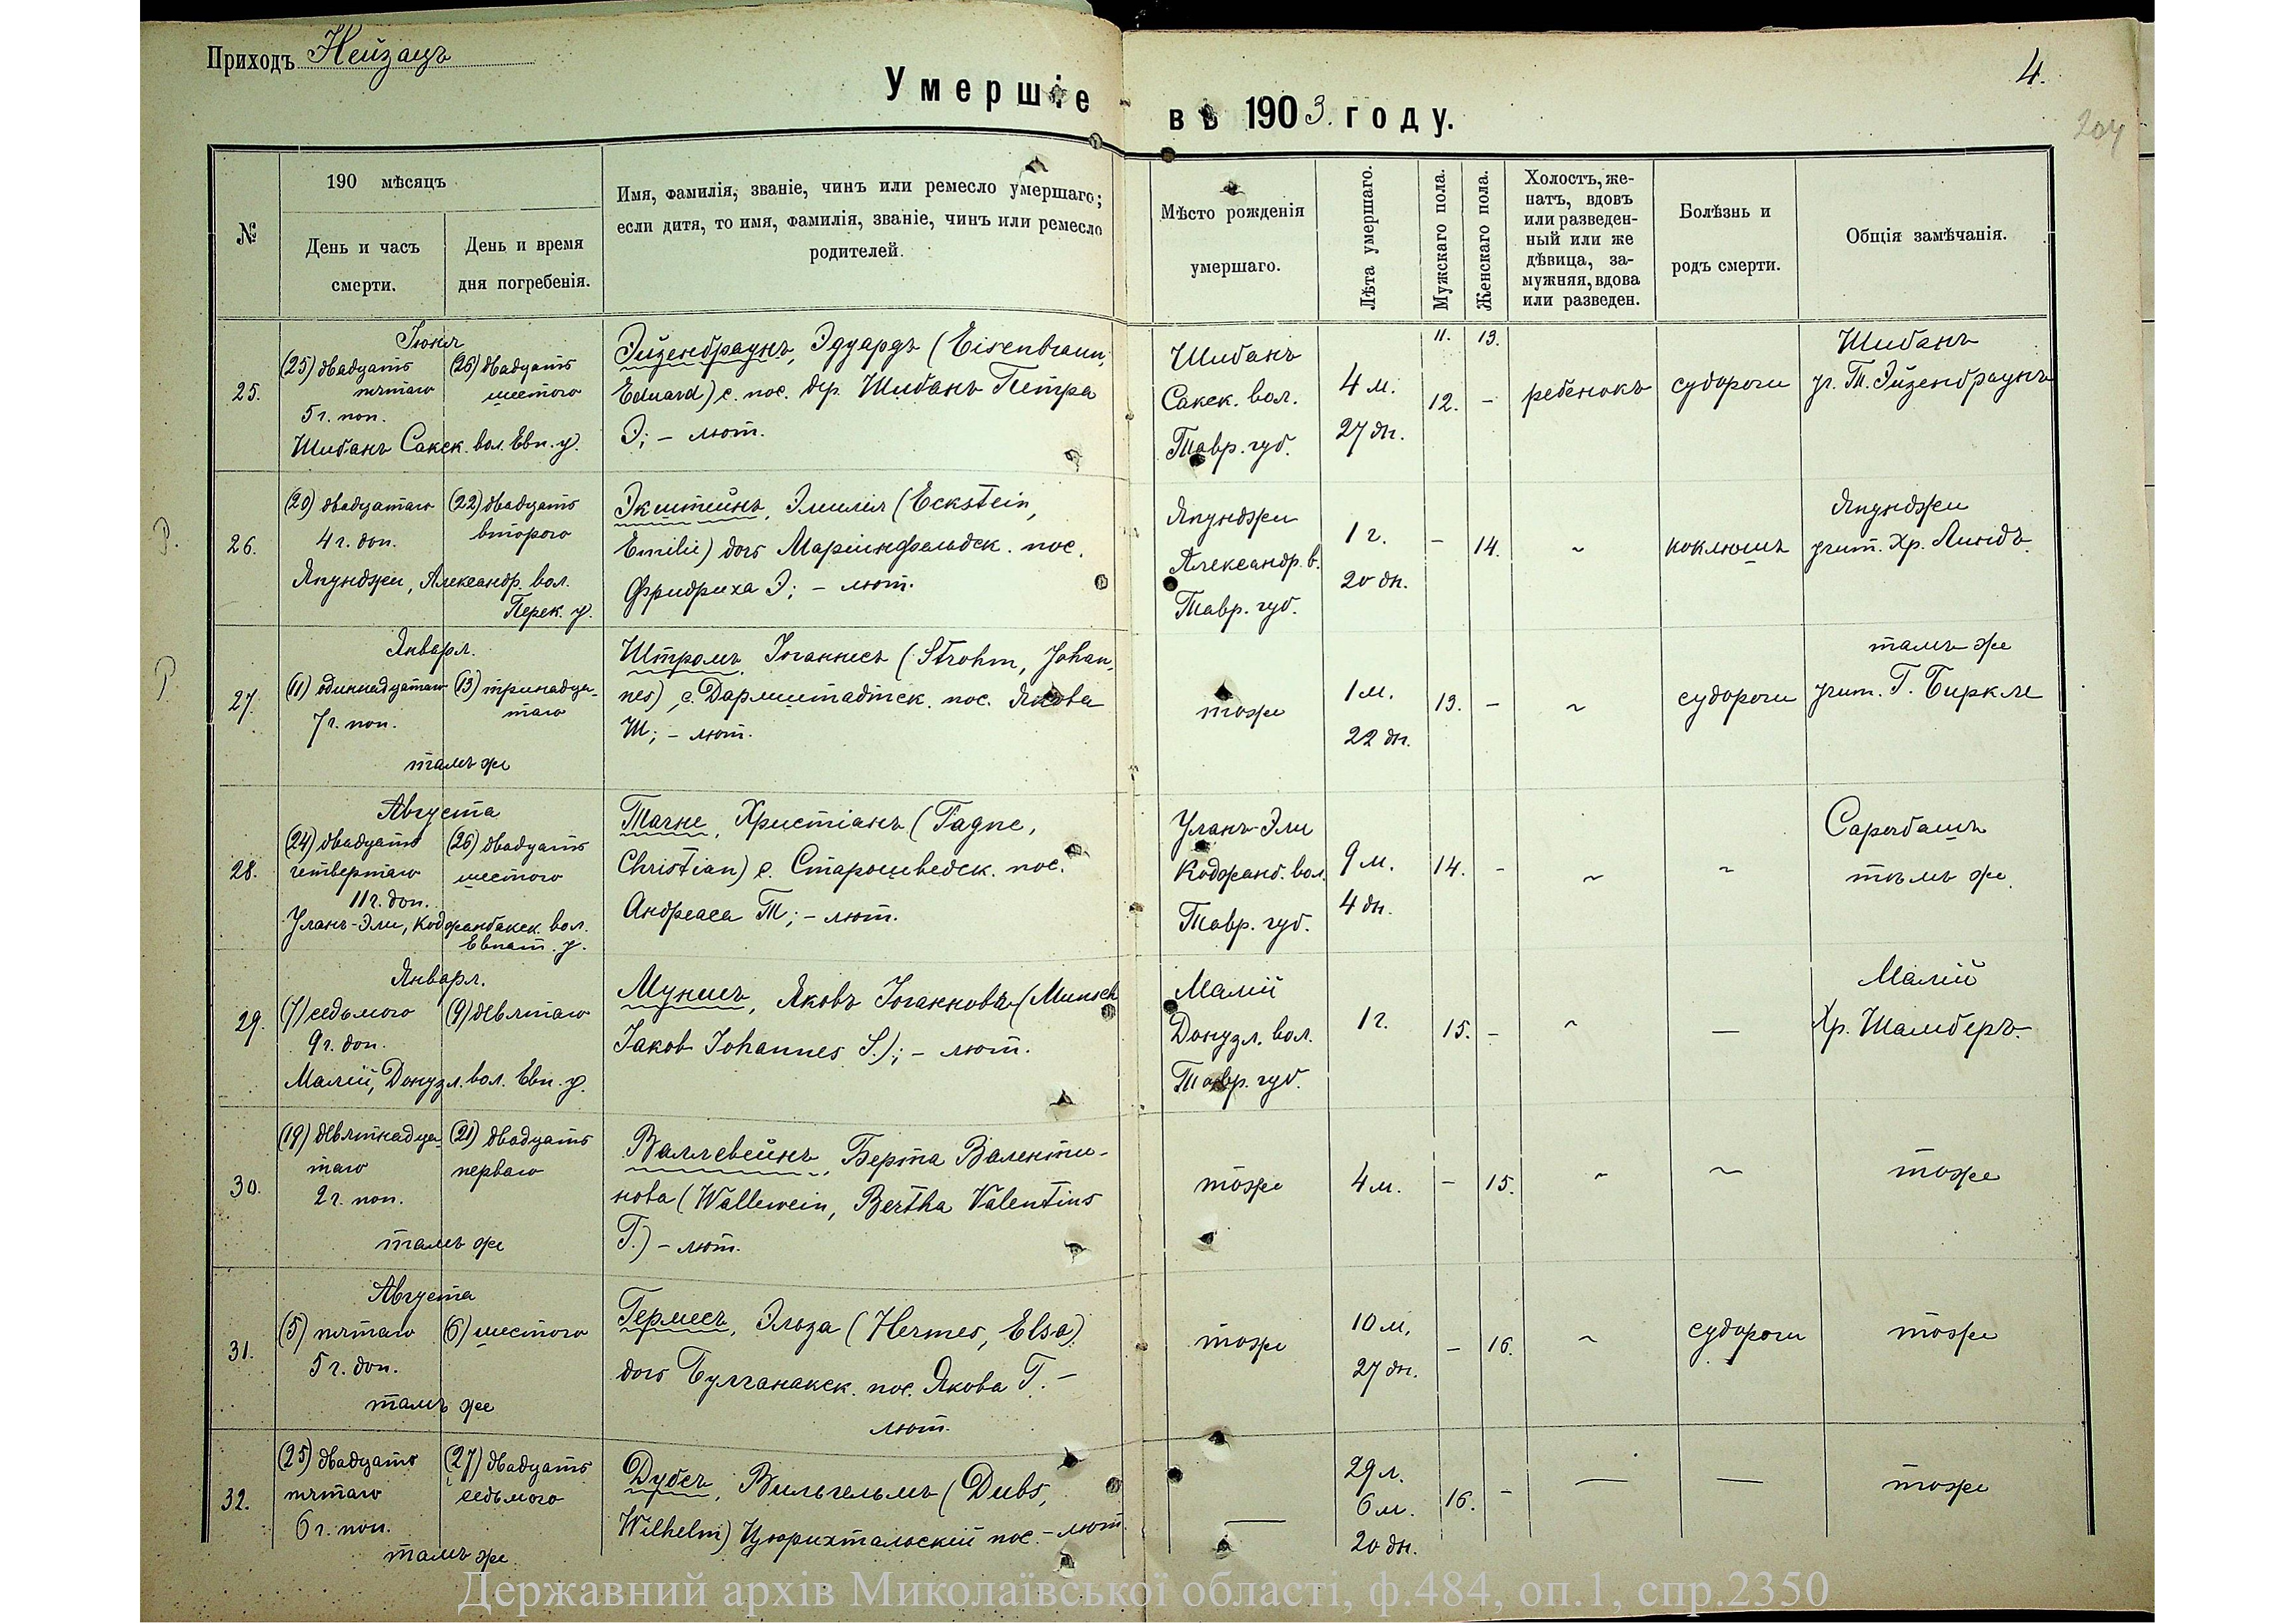 Приходъ Нейзацъ
4.
204
Умершіе въ 1903. году.
№
190 мѣсяцъ
День и часъ
смерти.
День и время
дня погребенія.
Имя, фамилія, званіе, чинъ или ремесло умершаго;
если дитя, то имя, фамилія, званіе, чинъ или ремесло
родителей.
Мѣсто рожденія
умершаго.
Лѣта умершаго.
Мужскаго пола.
Женскаго пола.
Холостъ, же-
натъ, вдовъ
или разведен-
ный или же
дѣвица, за-
мужняя, вдова
или разведен.
Болѣзнь и
родъ смерти.
Общія замѣчанія.
11.
13.
25.
Іюня
(25) двадцать
пятаго
5 г. поп.
(26) двадцать
шестого
Шибанъ Сакск. вол. Евп. у.
Эйзенбраунъ, Эдуардъ (Eisenbraun,
Eduard) с. пос. дер. Шибанъ Петра
Э; – лют.
Шибанъ
Сакск. вол.
Тавр. губ.
4 м.
27 дн.
12.
–
ребенокъ
судороги
Шибанъ
уч. Т. Эйзенбраунъ
Р.
26.
(20) двадцатаго
4 г. доп.
(22) двадцать
второго
Япунджи, Александр. вол.
Перек. у.
Экштейнъ, Эмилія (Eckstein,
Emilie) дочь Маріинфельдск. пос.
Фридриха Э; – лют.
Япунджи
Александр. в.
Тавр. губ.
1 г.
20 дн.
–
14.
~
коклюшъ
Япунджи
учит. Хр. Линдъ.
Р.
27.
Января.
(11) одиннадцатаго
7 г. поп.
(13) тринадца-
таго
тамъ же
Штромъ, Іоганнесъ (Strohm, Johan-
nes), с. Дармштадтск. пос. Якова
Ш; – лют.
тоже
1 м.
22 дн.
13.
–
~
судороги
тамъ же
учит. Г. Биркле
28.
Августа
(24) двадцать
четвертаго
11 г. доп.
(26) двадцать
шестого
Уланъ-Эли, Коджанбакск. вол.
Евпат. у.
Тагне, Христіанъ (Tagne,
Christian) с. Старошведск. пос.
Андреаса Т; – лют.
Уланъ-Эли
Коджанб. вол.
Тавр. губ.
9 м.
4 дн.
14.
–
~
~
Сарыбашъ
тамъ же
29.
Января.
(7) седьмого
9 г. доп.
(9) девятаго
Малій, Донузл. вол. Евп. у.
Муншъ, Яковъ Іоганновъ (Munsch
Jakob Johannes S.); – лют.
Малій
Донузл. вол.
Тавр. губ.
1 г.
15.
–
~
—
Малій
Хр. Шамберъ.
30.
(19) девятнадца-
таго
2 г. поп.
(21) двадцать
перваго
тамъ же
Валлевейнъ, Берта Валенти-
нова (Wallewein, Bertha Valentins
T.) – лют.
тоже
4 м.
–
15.
~
~
тоже
31.
Августа
(5) пятаго
5 г. доп.
(6) шестого
тамъ же
Гермесъ, Эльза (Hermes, Elsa)
дочь Булганакск. пос. Якова Г. –
лют.
тоже
10 м.
27 дн.
–
16.
~
судороги
тоже
32.
(25) двадцать
пятаго
6 г. поп.
(27) двадцать
седьмого
тамъ же
Дубсъ, Вильгельмъ (Dubs,
Wilhelm) Цюрихтальскій пос. – лют.
—
29 л.
6 м.
20 дн.
16.
–
—
—
тоже
Державний архів Миколаївської області, ф.484, оп.1, спр.2350